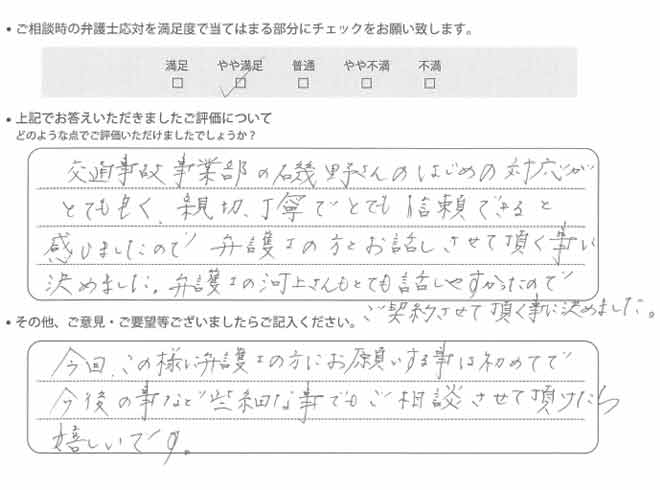 ・ご相談時の弁護士応対を満足度で当てはまる部分にチェックをお願い致します。
満足 やや満足 普通 やや不満 不満
□ ☑ □ □ □
・上記でお答えいただきましたご評価について
どのような点でご評価いただけましたでしょうか？
交通事故事業部の磯野さんのはじめの対応が
とても良く、親切、丁寧でとても信頼できると
感じましたので弁護士の方とお話しさせて頂く事に
決めました。弁護士の河上さんもとても話しやすかったので
ご契約させて頂く事に決めました。
・その他、ご意見・ご要望等ございましたらご記入ください。
今回、この様に弁護士の方にお願いする事は初めてで
今後の事など些細な事でもご相談させて頂けたら
嬉しいです。